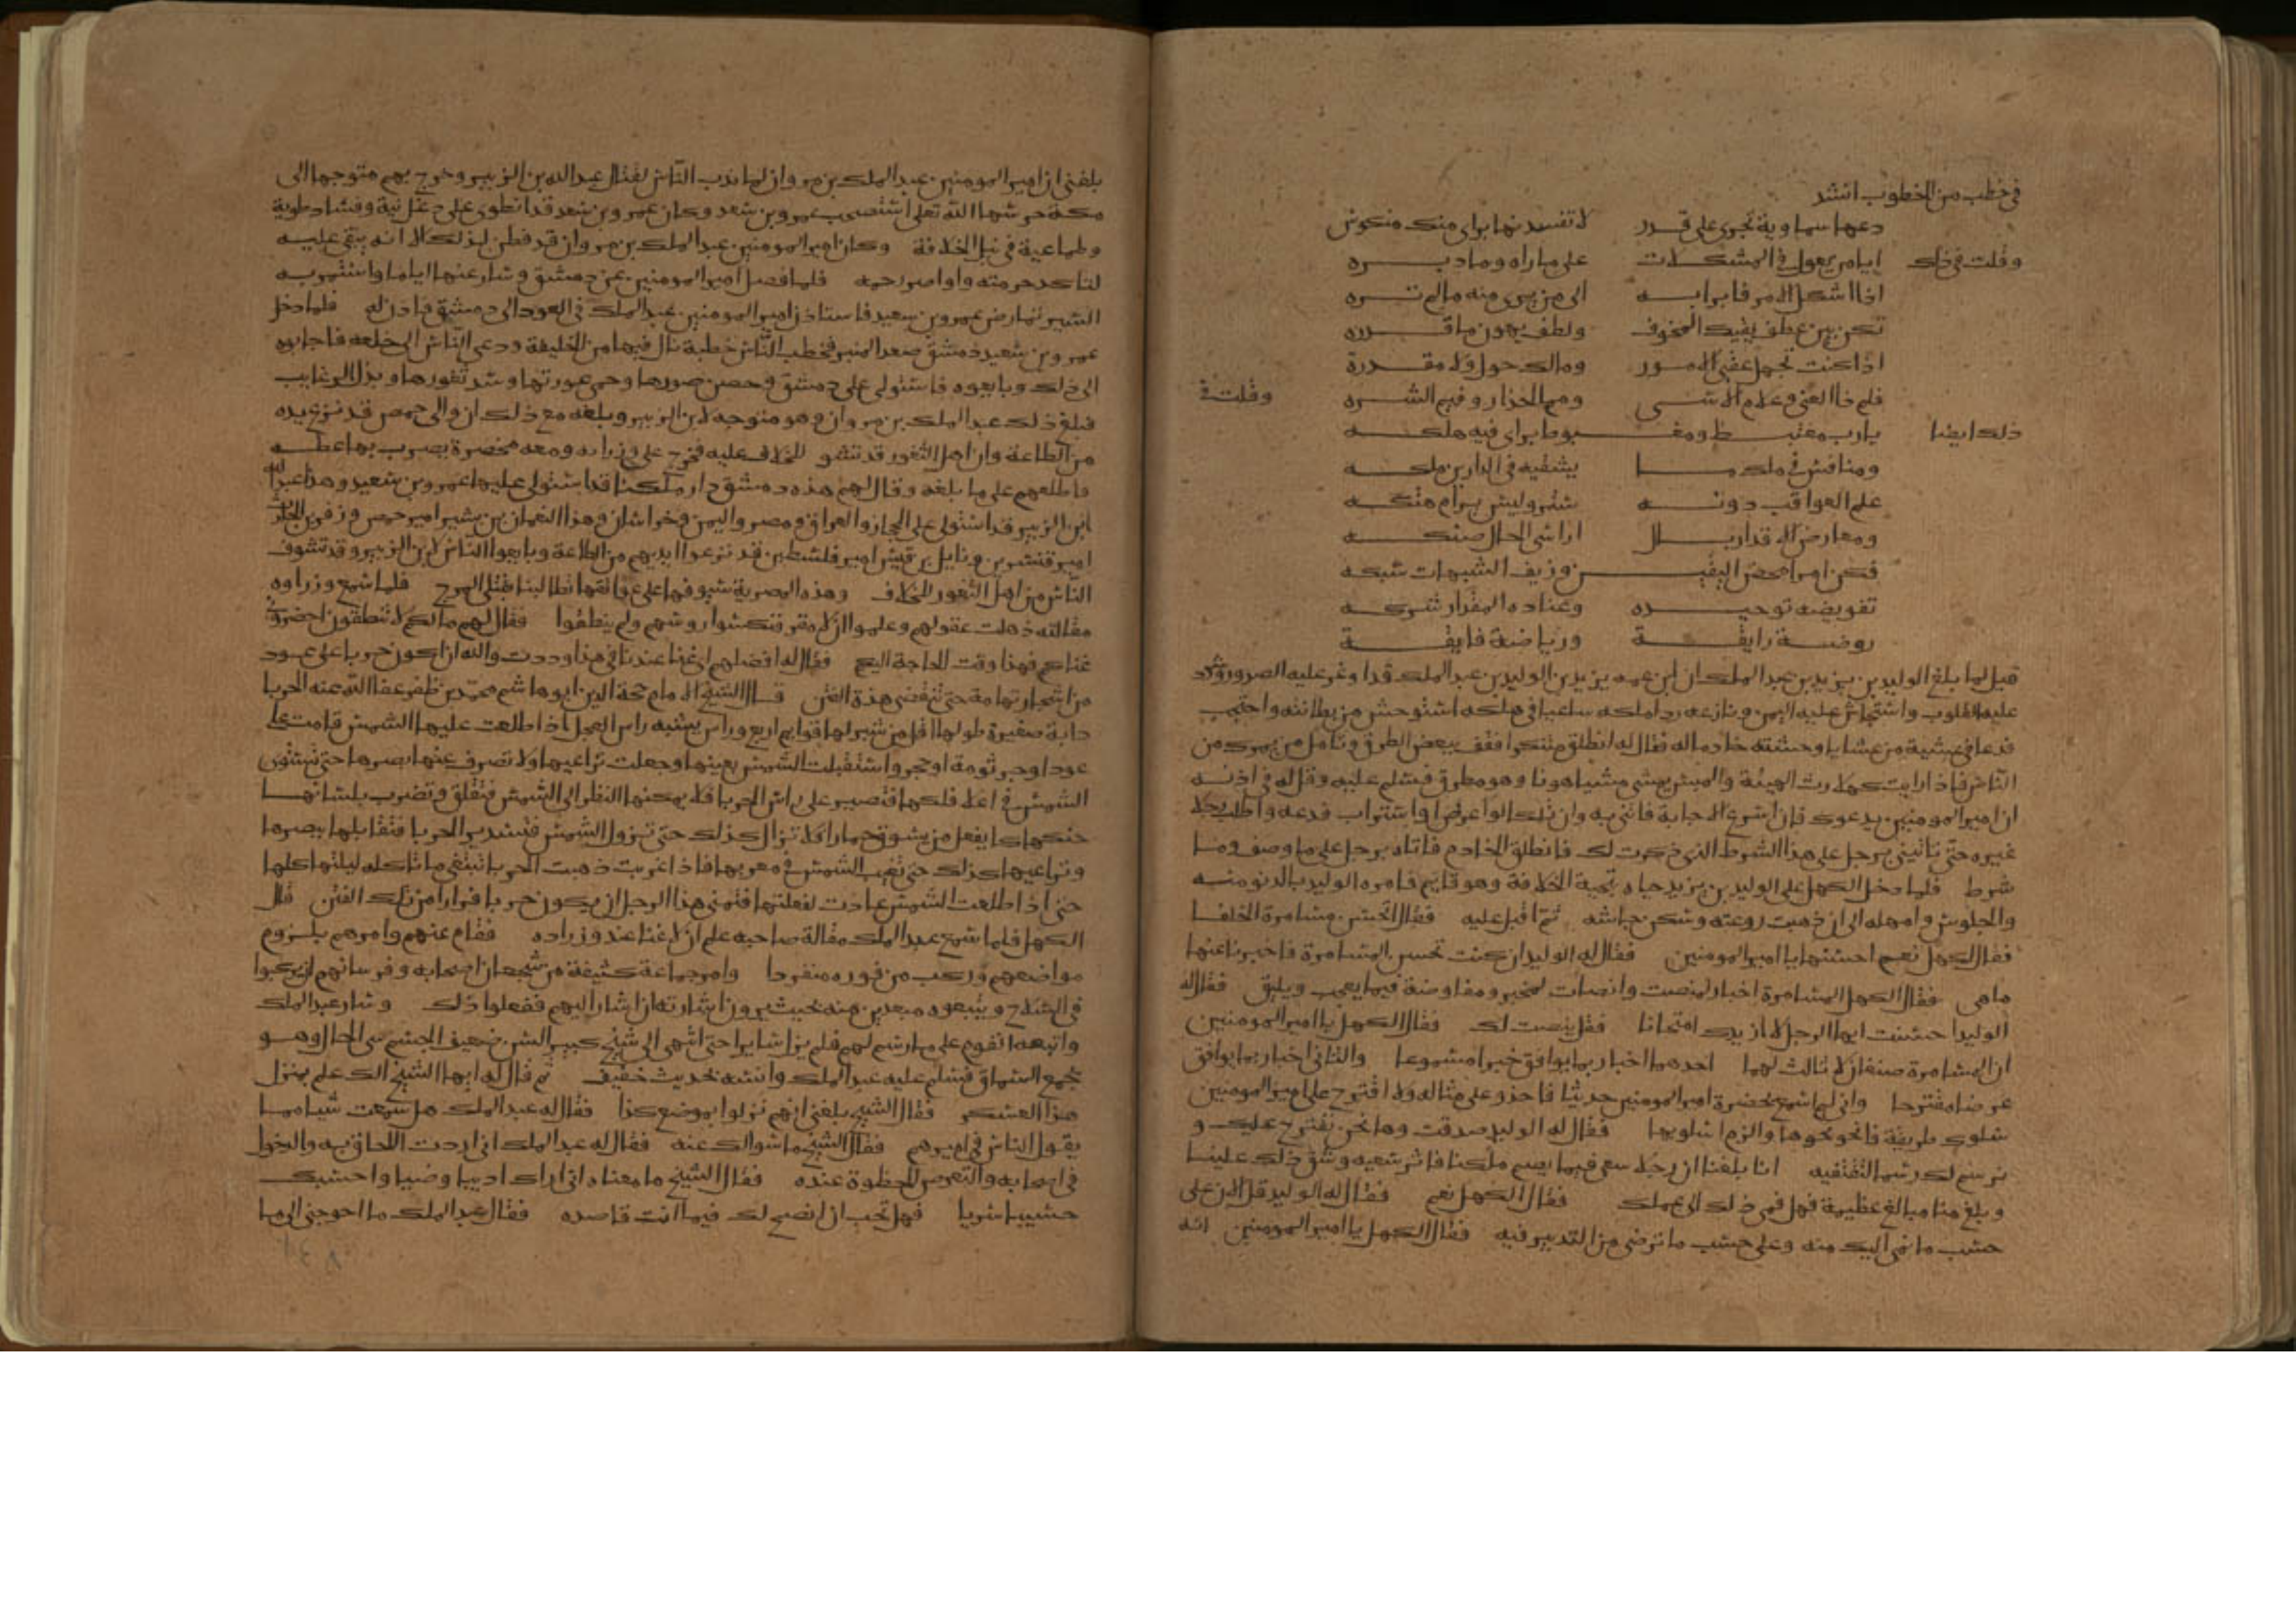 في خطب من الخطوب انشد
دعها سماوية تجري على قدر لا تفسدنها براي منك منكوس
وقلت في ذلك ايا من يعول في المشكلات على ما راه وما دبره
اذا اشكل الامر فابرا به الى من يرى منه ما لم تره
تكن بين عطف يقيك المخوف ولطف يهون ما قدره
اذا كنت تجهل عقبى الامور وما لك حول ولا مقدرة
فلم ذا العنى وعلام الاسى ومم الحذار وفيم الشره وقلت في
ذلك ايضا يا رب مغتبط ومغبوط براي فيه هلكه
ومنافس في ملك ما يشقيه في الدارين ملكه
علم العواقب دونه ستر وليس يرام هتكه
ومعارض الاقدار بالاراء سي الحال ضنكه
فكن امرا محض اليقين وزيف الشبهات سبكه
تفويضه توحيده وعناده المقدار شركه
روضة رايقة ورياضة فايقة
قيل لما بلغ الوليد بن يزيد بن عبد الملك ان ابن عمه يزيد بن الوليد بن عبد الملك قد اوغر عليه الصدور
عليه القلوب واستجاش عليه اليمن ونازعه ردا ملكه ساعيا في هلكه استوحش من بطانته واحتجب
فدعا في عشية من عشايا وحشته خادما له فقال له انطلق متنكرا فقف ببعض الطرق وتامل من يمر بك من
الناس فاذا رايت كهلا رث الهيئة والملبس يمشي مشيا هونا وهو مطرق فسلم عليه وقل له في اذنه
ان امير المومنين يدعوك فان اسرع الاجابة فاتني به وان تلكا او اعرض او استراب فدعه واطلب رجلا
غيره حتى تاتيني برجل على هذا الشرط الذي ذكرت لك فانطلق الخادم فاتاه برجل على ما وصف وما
شرط فلما دخل الكهل على الوليد بن يزيد حياه بتحية الخلافة وهو قايم فامره الوليد بالدنو منه
والجلوس وامهله الى ان ذهبت روعته وسكن جاشه ثم اقبل عليه فقال اتحسن مسامرة الخلفا
فقال الكهل نعم احسنها يا امير المومنين فقال له الوليد ان كنت تحسن المسامرة فاخبرنا عنها
ما هي فقال الكهل المسامرة اخبار لمنصت وانصات لمخبر ومفاوضة فيما يعجب ويليق فقال له
الوليد احسنت ايها الرجل لا ازيدك امتحانا فقل ينصت لك فقال الكهل يا امير المومنين
ان المسامرة صنفان لا ثالث لهما احدهما اخبار بما يوافق خبرا مسموعا والثاني اخبار بما يوافق
غرضا مقترحا واني لم اسمع بحضرة امير المومنين حديثا فاحذو على مثاله ولا اقترح علي امير المومنين
سلوك طريقة فانحو نحوها والزم اسلوبها فقال له الوليد صدقت وها نحن نقترح عليك و
نرسم لك رسما لتقتفيه انا بلغنا ان رجلا سعى فيما يضم ملكنا فاثر سعيه وشق ذلك علينا
وبلغ منا مبالغ عظيمة فهل نمى ذلك الى علمك فقال الكهل نعم فقال له الوليد قل الان على
حسب ما نمى اليك منه وعلى حسب ما ترضى من التدبير فيه فقال الكهل يا امير المومنين انه
بلغني ان امير المومنين عبد الملك بن مروان لما ندب الناس لقتال عبد الله بن الزبير وخرج بهم متوجها الى
مكة حرسها الله تعلى استصحب عمرو بن سعد وكان عمرو بن سعد قد انطوى على دغل نية وفساد طوية
وطماعية في نيل الخلافة وكان امير المومنين عبد الملك بن مروان قد فطن لذلك الا انه يبقي عليه
لتاكد حرمته واواصر رحمه فلما فصل امير المومنين عن دمشق وسار عنها اياما واستمر به
السير تمارض عمرو بن سعيد فاستاذن امير المومنين عبد الملك في العود الى دمشق فاذن له فلما دخل
عمرو بن سعيد دمشق صعد المنبر فخطب الناس خطبة نال فيها من الخليفة ودعى الناس الى خلعه فاجابوه
الى ذلك وبايعوه فاستولى على دمشق وحصن صورها وحمى عورتها وسد ثغورها وبذل الرغايب
فبلغ ذلك عبد الملك بن مروان وهو متوجه لابن الزبير وبلغه مع ذلك ان والي حمص قد نزع يده
من الطاعة وان اهل الثغور قد تشوفوا للخلاف عليه فخرج على وزرايه ومعه مخصرة يضرب بها عطفه
فاطلعهم على ما بلغه وقال لهم هذه دمشق دار ملكنا قد استولى عليها عمرو بن سعيد وهذا عبد الله
ابن الزبير قد استولى على الحجاز والعراق ومصر واليمن وخراسان وهذا النعمان بن بشير امير حمص وزفر بن الحارث
امير قنسرين ونايل بن قيس امير فلسطين قد نزعوا ايديهم من الطاعة وبايعوا الناس لابن الزبير وقد تشوف
الناس من اهل الثغور للخلاف وهذه المصرية سيوفها على عواتقها تطالبنا بقتلى المرج فلما سمع وزراوه
مقالته ذهلت عقولهم وعلموا ان لا مقر فنكسوا روسهم ولم ينطقوا فقال لهم ما لكم لا تنطقون احضروني
غناكم فهذا وقت الحاجة اليكم فقال له افضلهم اي غنا عندنا في هذا وددت والله ان اكون حربا على عود
من اشجار تهامة حتى تنقضي هذه الفتن قال الشيخ الامام حجة الدين ابو هاشم محمد بن ظفر عفا الله عنه الحربا
دابة صغيرة طولها اقل من شبر لها قوايم اربع وراس يشبه راس العجل اذا طلعت عليها الشمس قامت على
عود او جرثومة او حجر واستقبلت الشمس بعينها وجعلت تراعيها ولا تصرف عنها بصرها حتى تستوي
الشمس في اعلا فلكها فتصير على راس الحربا فلا يمكنها النظر الى الشمس فتقلق وتضرب بلسانها
حنكها كما يفعل من يسوق حمارا فلا تزال كذلك حتى تزول الشمس فتستدير الحربا فتقابلها ببصرها
وتراعيها كذلك حتى تغيب الشمس في مغربها فاذا غربت ذهبت الحربا تبتغي ما تاكله ليلتها كلها
حتى اذا طلعت الشمس عادت لفعلتها فتمنى هذا الرجل ان يكون حربا فرارا من تلك الفتن قال
الكهل فلما سمع عبد الملك مقالة صاحبه علم ان لا غنا عند وزراده فقام عنهم وامرهم بلزوم
مواضعهم وركب من فوره منفردا وامر جماعة كثيفة من شجعان اصحابه وفرسانهم ان يركبوا
في السلاح ويتبعوه مبعدين منه بحيث يرون اشارته ان اشار اليهم ففعلوا ذلك وسار عبد الملك
واتبعه القوم على ما رسم لهم فلم يزل سايرا حتى انتهى الى شيخ كبير السن ضعيف الجسم سي الحال وهو
يجمع السماق فسلم عليه عبد الملك وانسه بحديث خفيف ثم قال له ايها الشيخ الك علم بمنزل
هذا العسكر فقال الشيخ بلغني انهم نزلوا بموضع كذا فقال له عبد الملك هل سمعت شيا مما
يقول الناس في اميرهم فقال الشيخ ما سوالك عنه فقال له عبد الملك اني اردت اللحاق به والدخول
في اصحابه والتعرض للحظوة عنده فقال الشيخ ما معناه اني اراك اديبا وضيا واحسبك
حسيبا سريا فهل تحب ان انصح لك فيما انت قاصده فقال عبد الملك ما احوجني الى ما